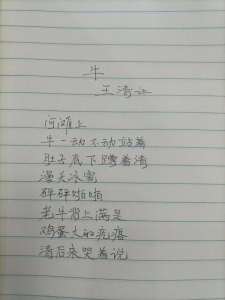 牛
王清让
河滩上
牛一动不动站着
肚子底下蹲着
漫天冰雹
砰砰啪啪
老牛背上满是
鸡蛋大的疙瘩
后来哭着说